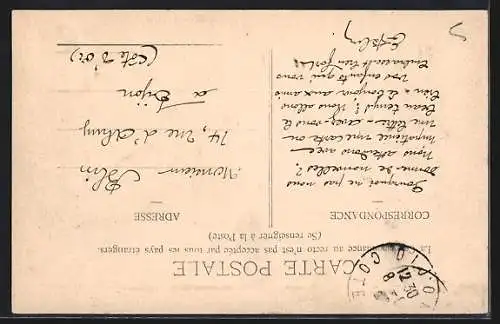 CARTE POSTALE
La Correspondance au recto n'est pas acceptée par tous les pays étrangers.
(Se renseigner à la Poste)
CORRESPONDANCE
Pourquoi ne pas nous
donner de nouvelles?
Nous attendons avec
impatience une carte ou
une lettre - avez-vous le
beau temps? Nous allons
bien - le bonjour aux amis
Vos enfants qui vous
embrassent bien fort
ADRESSE
Monsieur
14, rue d'
à Dijon
(Côte d'Or)
CÔTE
12 30
8
5